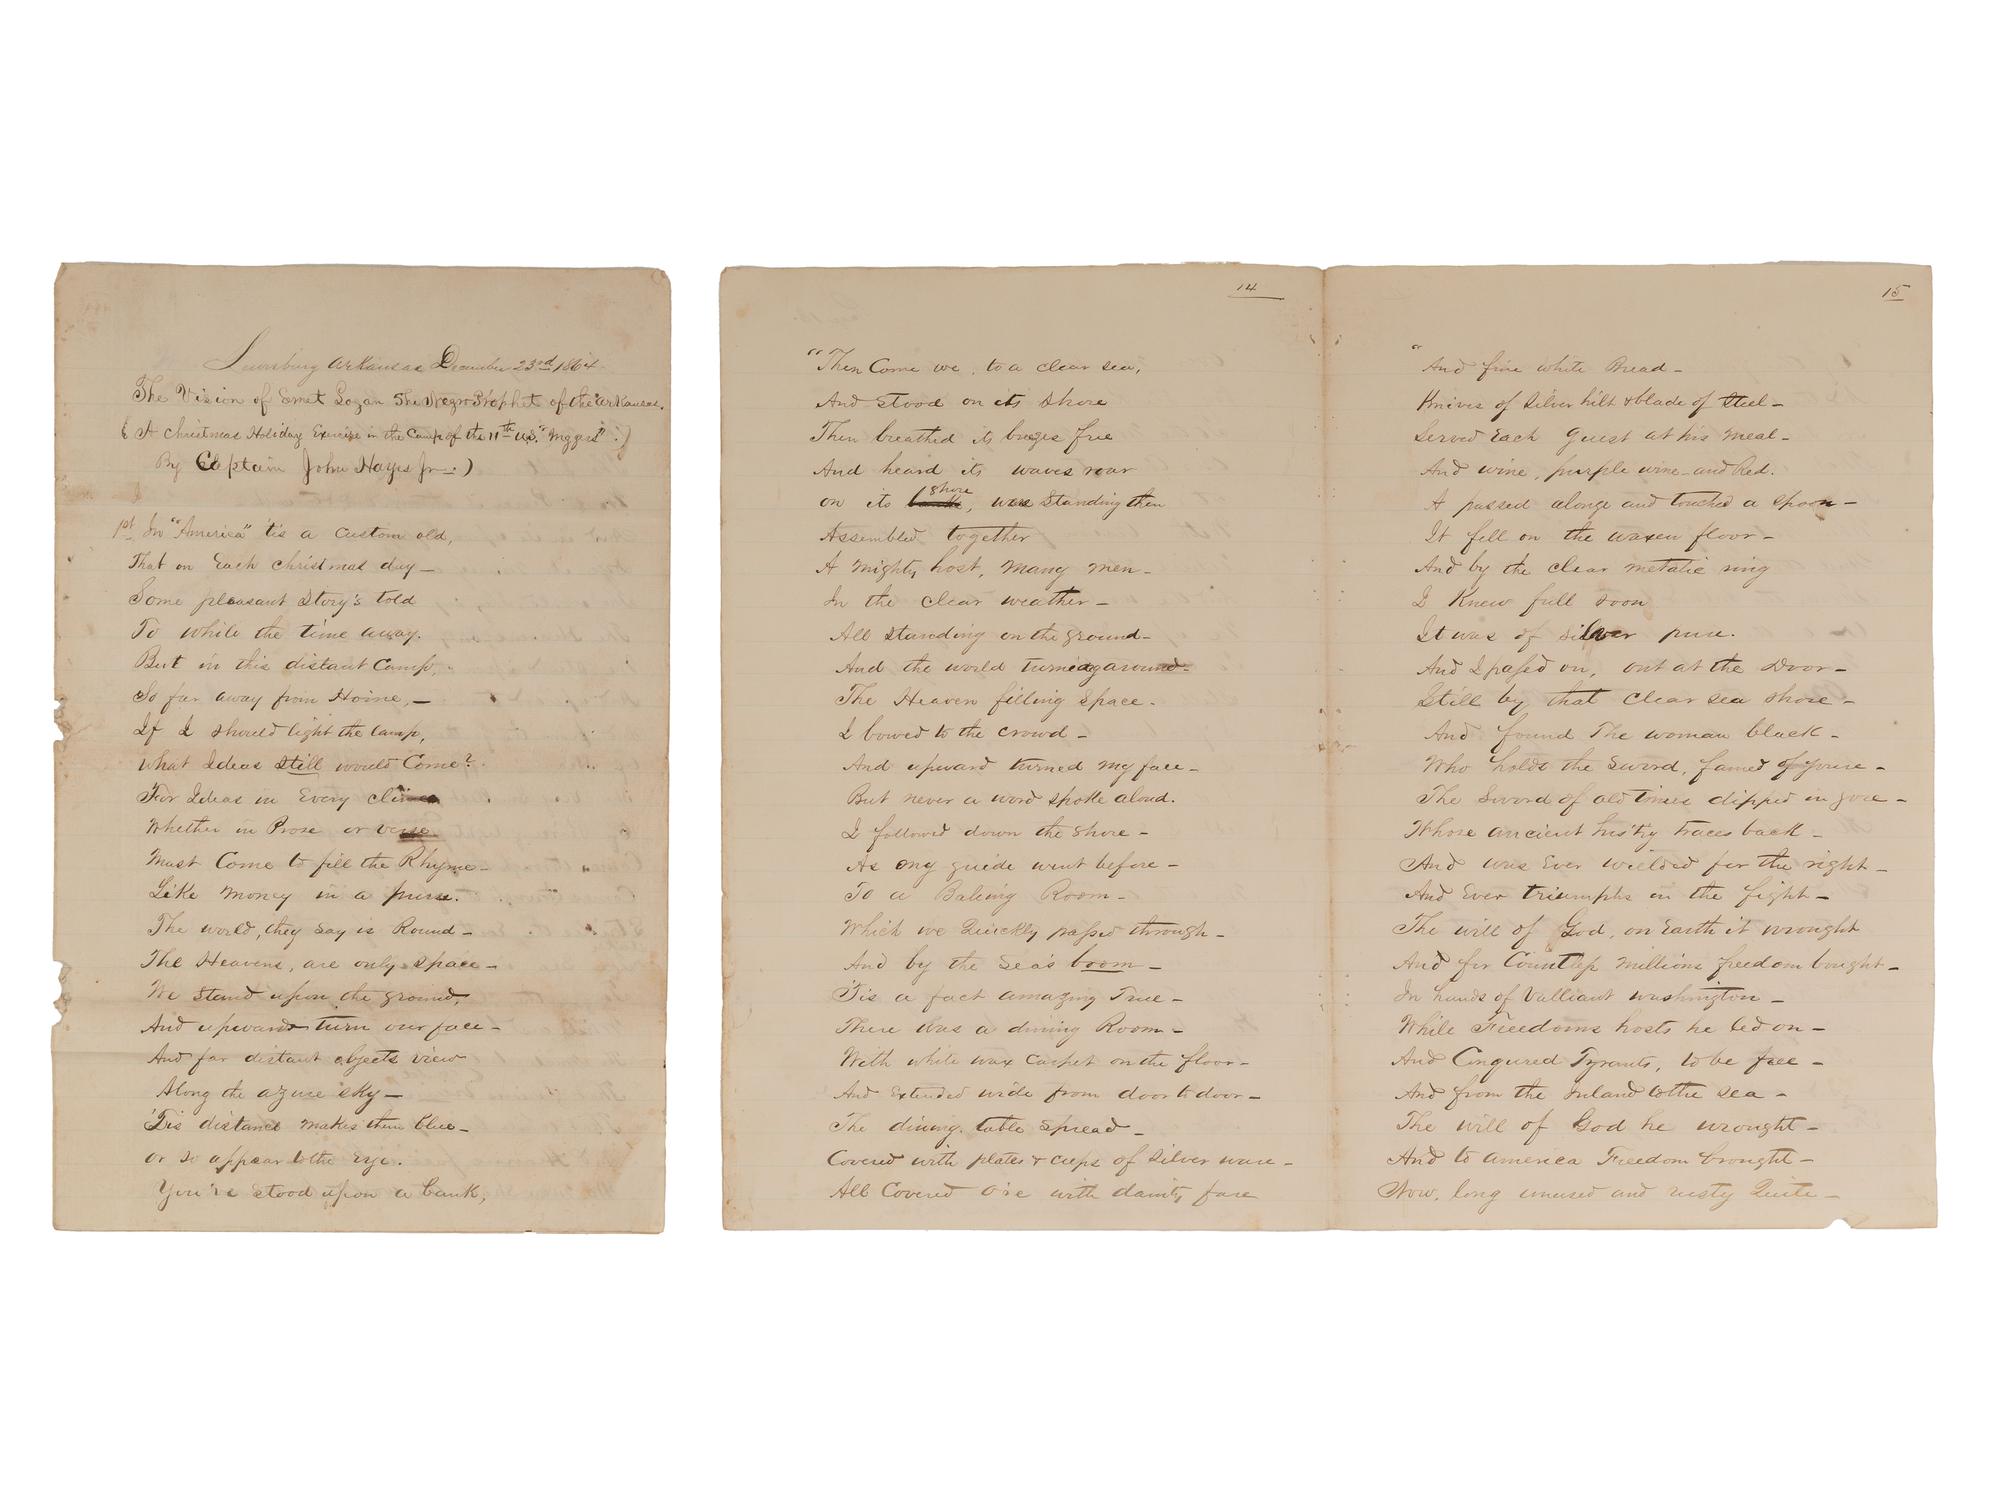 Lewisburg Arkansas December 23rd 1864.
The Vision of Emet Logan The Negro Prophet of the "Arkansas.
( A Christmas Holiday Exercise in the Camp of the 11th U.S. "Niggers" :)
By Captain John Hayes Jr.:)
1st In "America" tis a custom old,
That on Each christmas day—
Some pleasant Story's told
To while the time away.
But in this distant Camp,
So far away from Home,—
If I should light the lamp,
what Ideas still would Come?
For Ideas in Every
Whether in Prose or verse
Must Come to fill the Rhyme—
Like money in a purse.
The world, they say is Round—
The Heavens, are only space—
We stand upon the ground,
And upward turn our face—
And far distant objects view
Along the azure sky—
'Tis distance makes them blue—
or so appear to the Eye.
You've stood upon a bank,
14
"Then Come we, to a clear sea,
And stood on its shore
Then breathed its breezes free
And heard its waves roar
on its shore, was standing then
Assembled together
A mighty host, many men—
In the clear weather—
All standing on the ground—
And the world turning around—
The Heaven filling Space.
I bowed to the crowd—
And upward turned my face—
But never a word spoke aloud.
I followed down the shore—
As my guide went before—
To a Bakeing Room—
Which we Quickly passed through—
And by the Sea's boom—
'Tis a fact amazing True—
There was a dining Room—
With white wax carpet on the floor—
And Extended wide from door to door—
The dining table spread—
Covered with plates & cups of Silver ware—
All Covered ore with dainty fare
15
"And fine white Bread—
Knives of silver hilt & blade of Steel—
Served Each guest at his meal—
And wine, purple wine and Red.
I passed alonge and touched a spoon—
It fell on the waxen floor—
And by the clear metalic ring
I Knew full soon
It was of silver pure.
And I passed on, out at the Door—
Still by that clear sea shore—
And found The woman black—
Who holds the Sword, famed of youre—
The Sword of old times dipped in gore—
Whose ancient his'try traces back—
And was Ever wielded for the right—
And Ever triumphs in the fight—
The will of God, on Earth it wrought
And for Countless millions freedom bought—
In hands of Valliant washington—
While Freedoms hosts he led on—
And Conqured Tyrants, to be free—
And from the Inland to the sea—
The will of God he wrought—
And to america Freedom brought—
Now, long unused and rusty Quite—